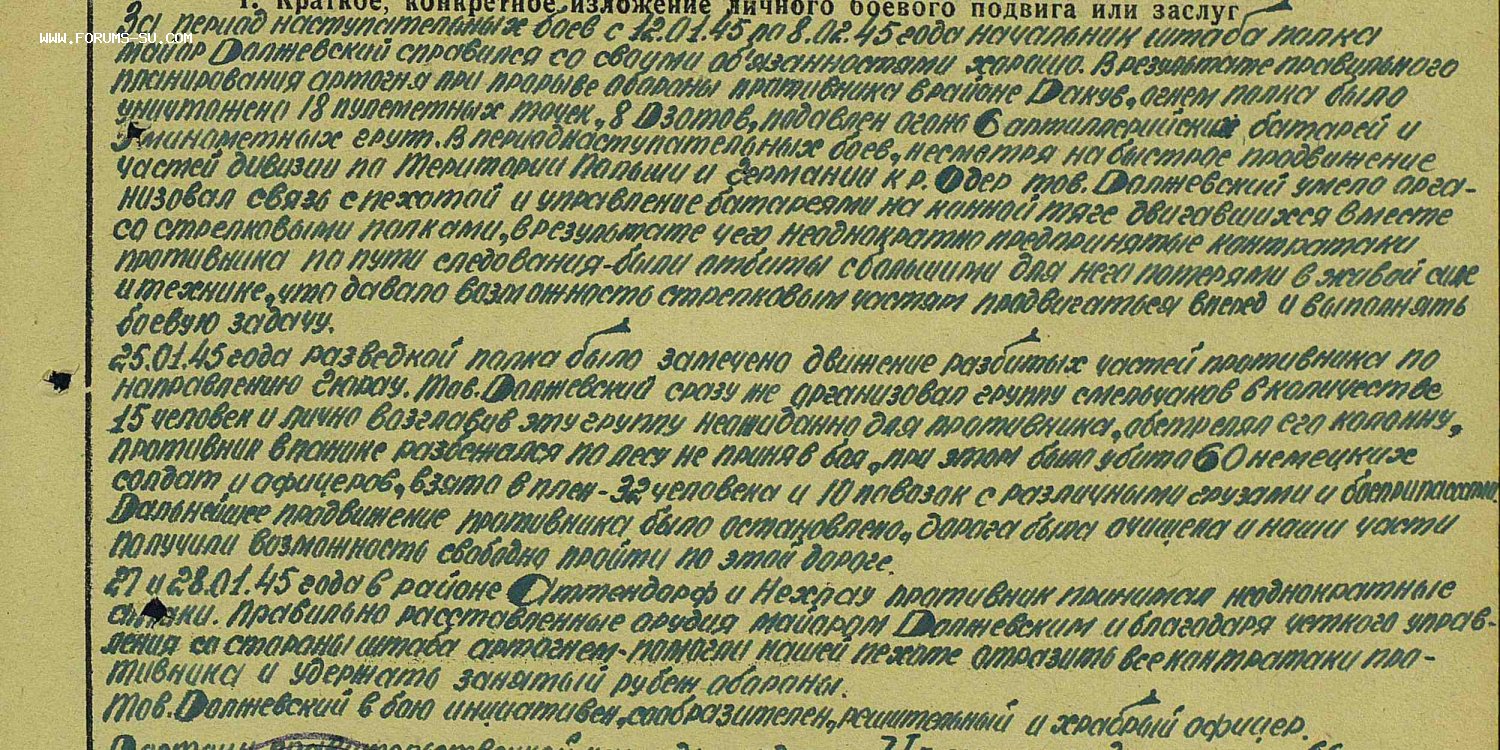 1. Краткое, конкретное изложение личного боевого подвига или заслуг
WWW.FORUMS-SU.COM
За период наступательных боев с 12.01.45 по 8.02.45 года начальник штаба полка
майор Должевский справился со своими обязанностями хорошо. В результате правильного
планирования артогня при прорыве обороны противника в районе Дакув, огнем полка было
уничтожено 18 пулеметных точек, 8 Дзотов, подавлен огонь 6 артиллерийских батарей и
минометных групп. В период наступательных боев, несмотря на быстрое продвижение
частей дивизии по Територии Польши и Германии к р. Одер тов. Должевский умело орга-
низовал связь с пехотой и управление батареями на конной тяге двигавшихся вместе
со стрелковыми полками, в результате чего неоднократно предпринятые контратаки
противника по пути следования-были отбиты с большими для него потерями в живой силе
и технике, что давало возможность стрелковым частям продвигаться вперед и выполнять
боевую задачу.
25.01.45 года разведкой полка было замечено движение разбитых частей противника по
направлению Гюрау. Тов. Должевский сразу же организовал группу смельчаков в количестве
15 человек и лично возглавив эту группу неожиданно для противника, обстрелял его колонну,
противник в панике разбежался по лесу не приняв боя, при этом было убито 60 немецких
солдат и офицеров, взято в плен-32 человека и 10 повозок с различными грузами и боеприпассами.
Дальнейшее продвижение противника было остановлено, дорога была очищена и наши части
получили возможность свободно пройти по этой дороге.
27 и 28.01.45 года в районе Оттендорф и Нехлау противник принимал неоднократные
атаки. Правильно расставленные орудия майором Должевским и благодаря четкого управ-
ления со стороны штаба артогнем-помогли нашей пехоте отразить все контратаки про-
тивника и удержать занятый рубеж обороны.
Тов. Должевский в бою инициативен, сообразителен, решительный и храбрый офицер.